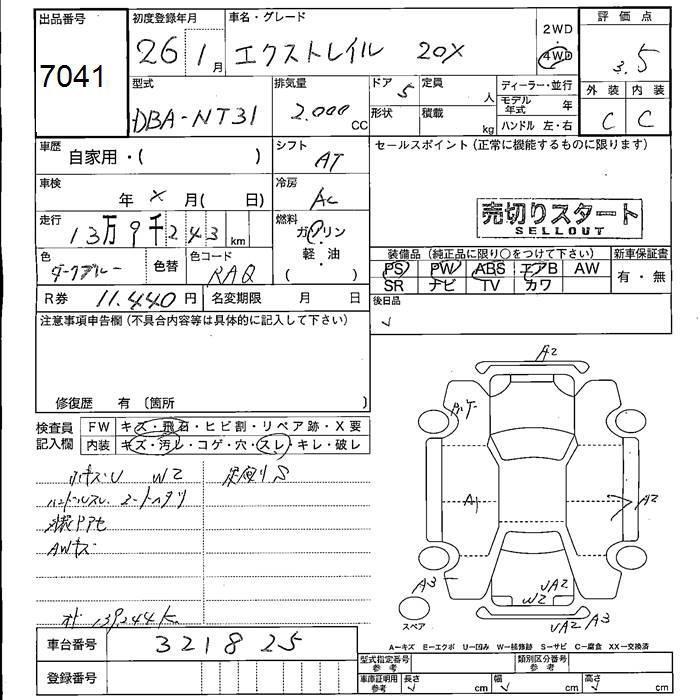 出品番号 初度登録年月 車名・グレード 評価点
7041 26 1月 エクストレイル 20X 2WD 4WD 3.5
型式 排気量 ドア 定員 ディーラー・並行 外装 内装
DBA-NT31 2.000 CC 5 人 モデル年式 年 C C
形状 積載 kg ハンドル 左・右
車歴 自家用・( ) シフト AT セールスポイント(正常に機能するものに限ります)
車検 年 × 月( 日) 冷房 AC 売切りスタート
SELLOUT
走行 13万9千243 km 燃料 ガソリン
軽・油
( )
色 ダークブルー 色替 色コード RAQ
装備品(純正品に限り○をつけて下さい) 新車保証書
PS PW ABS エアB AW 有・無
SR ナビ TV カワ
R券 11.440円 名変期限 月 日 後日品
注意事項申告欄(不具合内容等は具体的に記入して下さい)
修復歴 有 〔箇所 〕
検査員記入欄 FW キズ・飛石・ヒビ割・リペア跡・X要
内装 キズ・汚レ・コゲ・穴・スレ・キレ・破レ
W2 足廻りS
ハンドルスレ
AWキズ
139,244k
A2
A1
A2
A3
UA2
W2
UA2 A3
スペア
A=キズ E=エクボ U=凹み W=補修跡 S=サビ C=腐食 XX=交換済
車台番号 321825
登録番号
型式指定番号 参考 類別区分番号 参考
車庫証明用 参考 長さ cm 幅 cm 高さ cm